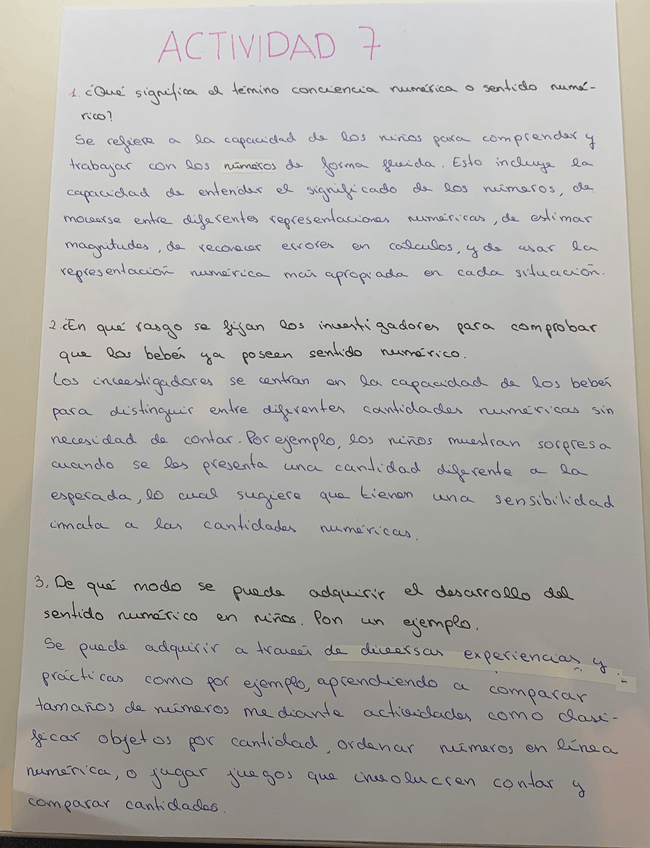 ACTIVIDAD 7
1. ¿Qué significa el término conciencia numérica o sentido numé-
rico?
Se refiere a la capacidad de los niños para comprender y
trabajar con los números de forma fluida. Esto incluye la
capacidad de entender el significado de los números, de
moverse entre diferentes representaciones numéricas, de estimar
magnitudes, de reconocer errores en cálculos, y de usar la
representación numérica más apropiada en cada situación.
2. ¿En qué rasgo se fijan los investigadores para comprobar
que los bebés ya poseen sentido numérico.
Los investigadores se centran en la capacidad de los bebés
para distinguir entre diferentes cantidades numéricas sin
necesidad de contar. Por ejemplo, los niños muestran sorpresa
cuando se les presenta una cantidad diferente a la
esperada, lo cual sugiere que tienen una sensibilidad
innata a las cantidades numéricas.
3. De qué modo se puede adquirir el desarrollo del
sentido numérico en niños. Pon un ejemplo.
Se puede adquirir a través de diversas experiencias y
prácticas como por ejemplo, aprendiendo a comparar
tamaños de números mediante actividades como clasi-
ficar objetos por cantidad, ordenar números en línea
numérica, o jugar juegos que involucren contar y
comparar cantidades.